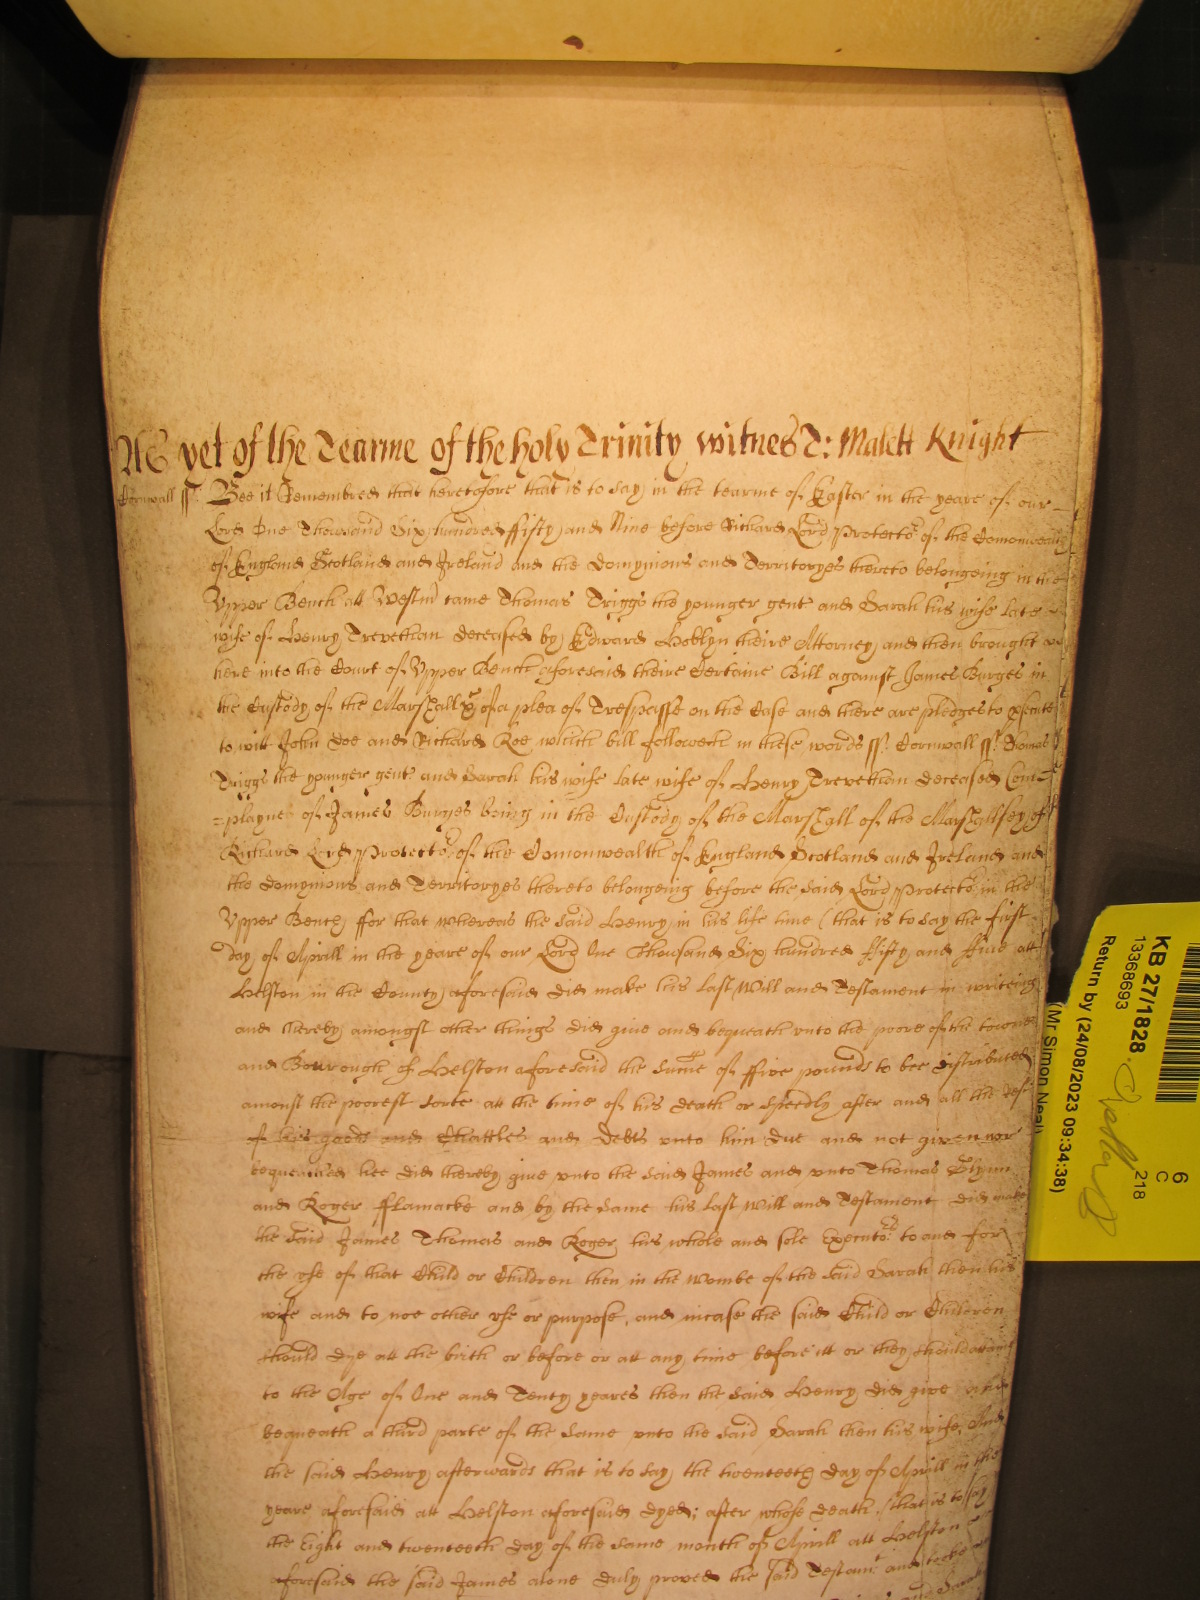 As yet of the Tearme of the holy Trinity witnes T: Malett Knight
Cornwall ss. Bee it Remembred that heretofore that is to say in the tearme of Easter in the yeare of our
Lord One Thousand Six hundred ffifty and Nine before Richard Lord Protector of the Comonwealth
of England Scotland and Ireland and the Domynions and Territoryes thereto belongeing in the
Vpper Bench att Westm came Thomas Triggs the younger gent and Sarah his wife late
wife of Henry Trevethan deceased by Edward Hoblyn theire Attorney and then brought
here into the Court of Vpper Bench aforesaid theire Certaine Bill against James Burges in
the Custody of the Marshall &c of a plea of Trespasse on the Case and there are pledges to prosecute
to witt John Doe and Richard Roe which bill followeth in these words ss. Cornwall ss. Thomas
Triggs the younger gent and Sarah his wife late wife of Henry Trevethan deceased Com=
=playne of James Burges being in the Custody of the Marshall of the Marshallsey of
Richard Lord Protector of the Comonwealth of England Scotland and Ireland and
the Domynions and Territoryes thereto belongeing before the said Lord Protector in the
Vpper Bench ffor that whereas the said Henry in his life time (that is to say the first
day of Aprill in the yeare of our Lord One Thousand Six hundred ffifty and ffive att
Helston in the County aforesaid did make his last Will and Testament in writeing
and thereby amongst other things did give and bequeath vnto the poore of the towne
and Bourrough of Helston aforesaid the sume of ffive pounds to bee distributed
amonst the poorest sorte att the time of his death or speedly after and all the rest
of his goods and Chattles and debts vnto him due and not given nor
bequeathed hee did thereby give vnto the said James and vnto Thomas Glynn
and Roger fflamacke and by the same his last Will and Testament did make
the said James Thomas and Roger his whole and sole Executors to and for
the vse of that Child or Children then in the wombe of the said Sarah then his
wife and to noe other vse or purpose, and incase the said Child or Children
should dye att the birth or before or att any time before itt or they should attaine
to the Age of One and Tenty yeares then the said Henry did give and
bequeath a third parte of the same vnto the said Sarah then his wife, And
the said Henry afterwards that is to say the twenteeth day of Aprill in the
yeare aforesaid att Helston aforesaid dyed; after whose death (that is to say
the Eight and twenteeth day of the same month of Aprill att Helston
aforesaid the said James alone duly proved the said Testamt and
and Sarah
KB 27/1828
13368693
Return by (24/08/2023 09:34:38)
(Mr Simon Neal)
6
C
218